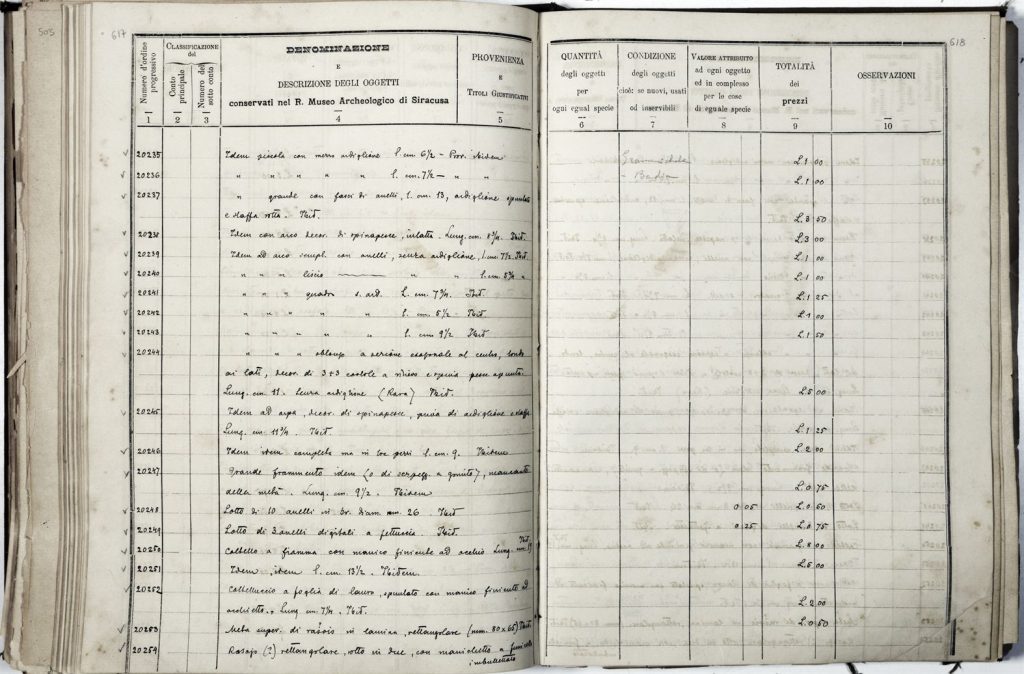 505
617
Numero d'ordine progressivo
CLASSIFICAZIONE del
Conto principale
Numero del sotto conto
DENOMINAZIONE
E
DESCRIZIONE DEGLI OGGETTI
conservati nel R. Museo Archeologico di Siracusa
PROVENIENZA
E
TITOLI GIUSTIFICATIVI
1 2 3 4 5
20235 Idem piccola con mezzo ardiglione l. cm 6 1/2 - Prov. ibidem
20236 " " " " " l. cm. 7 1/2 - " "
20237 " grande con fasci di anelli, l. cm. 13, ardiglione spuntato
e staffa rotta. Ibid.
20238 Idem con arco decor. di spinapesce, Lung. cm. 8 3/4. Ibid.
20239 Idem ad arco sempl. con anelli, senza ardiglione, l. cm. 7 1/2 Ibid.
20240 " " " liscio " " l. cm. 5 3/4 "
20241 " " " quadro s. ard. L. cm. 7 3/4 Ibid.
20242 " " " " " l. cm. 5 1/2 - Ibid
20243 " " " " " l. cm 9 1/2 Ibid
20244 " " " oblungo a sezione esagonale al centro, tondo
ai lati, decor. di 3+3 costole a rilievo e
Lung. cm. 11. Senza ardiglione (Rara) Ibid.
20245 Idem ad arpa, decor. di spinapesce, priva di ardiglione e staffa
Lung. cm 11 3/4. Ibid.
20246 Idem idem completa ma in tre pezzi l. cm. 9. Ibidem
20247 Grande frammento idem (o di a gomito), mancante
della metà. Lung. cm. 9 1/2. Ibidem
20248 Lotto di 10 anelli in br. diam. mm. 26. Ibid
20249 Lotto di 3 anelli digitali a fettuccia. Ibid.
20250 Coltello a fiamma con manico finiente ad occhio Lung. cm. 19 Ibid.
20251 Idem, idem l. cm. 13 1/2. Ibidem.
20252 Coltelluccio a foglia di lauro, spuntato con manico finiente ad
occhietto. Lung. cm. 7 1/4. Ibid.
20253 Metà super. di rasoio in lamina, rettangolare (mm. 80 x 65) Ibid.
20254 Rasojo (?) rettangolare, rotto in due, con manichetto a
imbullettato
618
QUANTITÀ
degli oggetti
per
ogni egual specie
CONDIZIONE
degli oggetti
cioè: se nuovi, usati
od inservibili
VALORE ATTRIBUITO
ad ogni oggetto
ed in complesso
per le cose
di eguale specie
TOTALITÀ
dei
prezzi
OSSERVAZIONI
6 7 8 9 10
L. 1 00
L. 1 00
L. 3 50
L. 3 00
L. 1 00
L. 1 00
L. 1 25
L. 1 00
L. 1 50
L. 5 00
L. 1 25
L. 2 00
L. 0 75
0 05 L. 0 50
0 25 L. 0 75
L. 8 00
L. 5 00
L. 2 00
L. 0 50